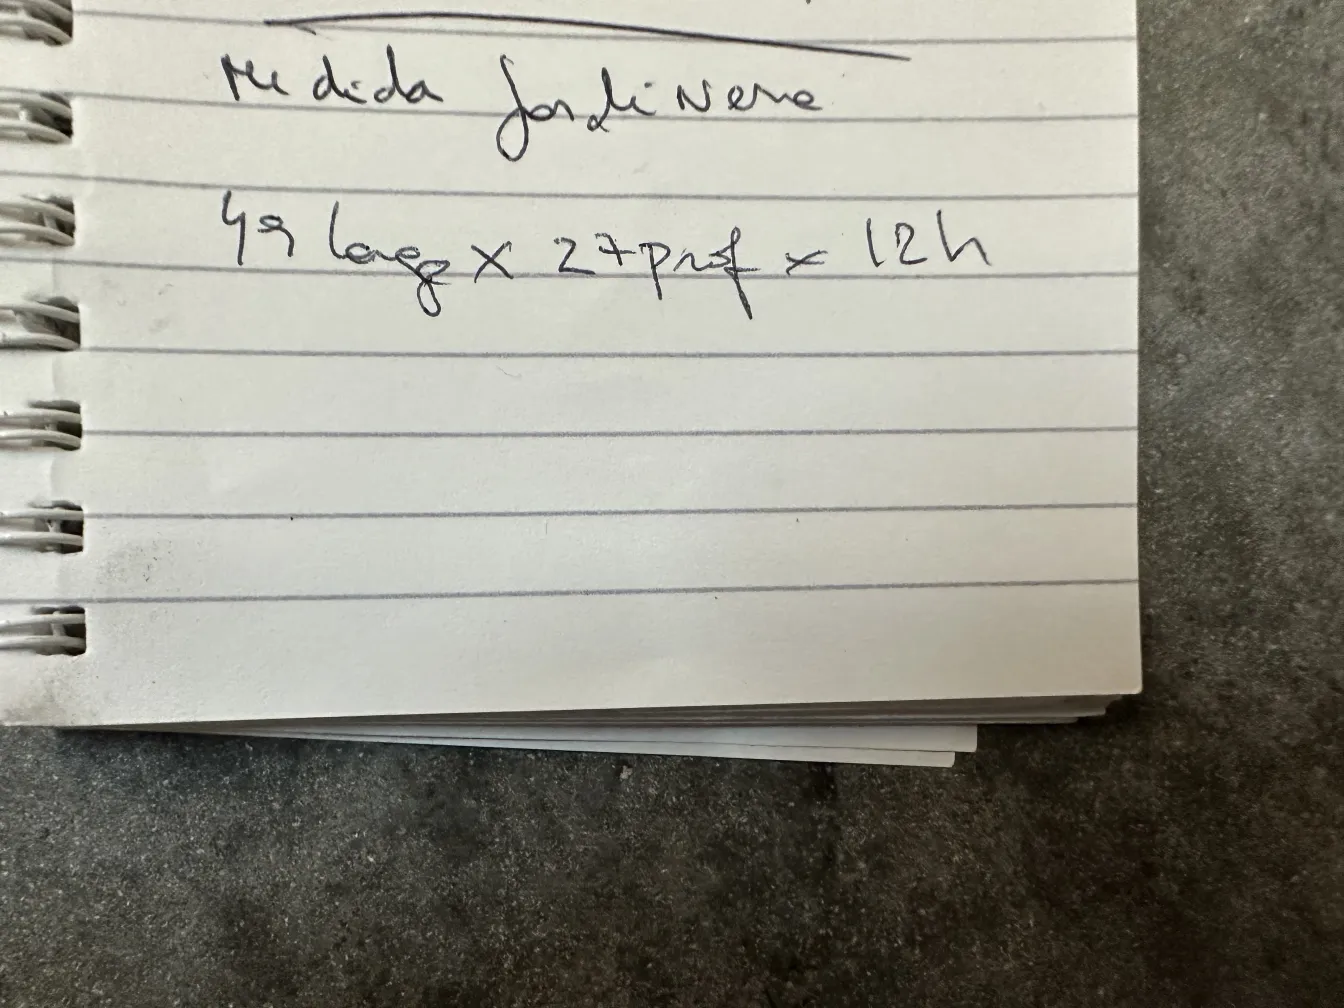 Medida Jardinera
49 larg x 27 prof x 12h